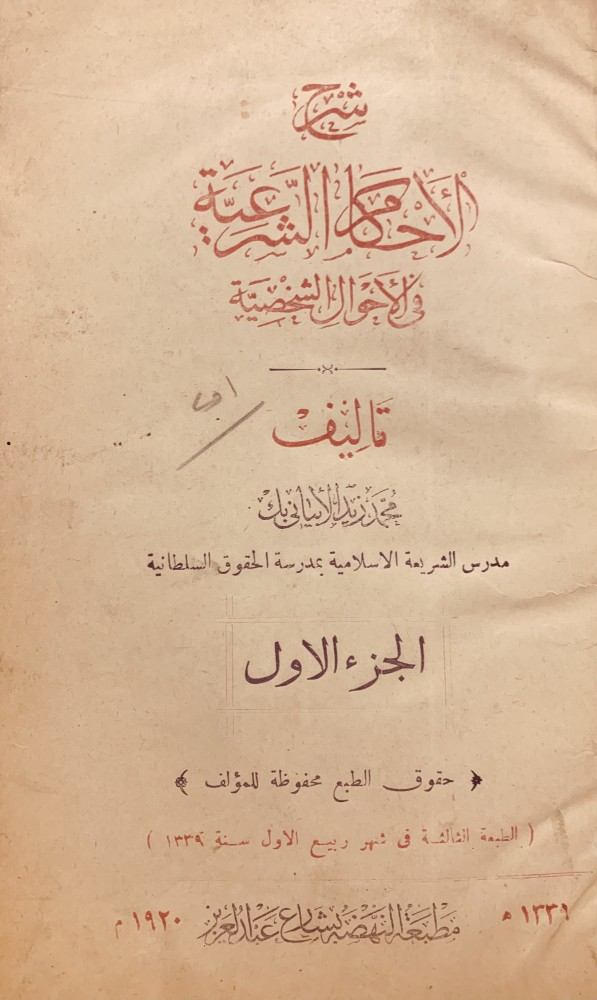 شرح
الأحكام الشرعية
في الأحوال الشخصية
تأليف
محمد زيد الأبياني بك
مدرس الشريعة الاسلامية بمدرسة الحقوق السلطانية
الجزء الاول
﴿ حقوق الطبع محفوظة للمؤلف ﴾
( الطبعة الثالثة فى شهر ربيع الاول سنة ١٣٣٩ )
١٣٣٩ ه مطبعة النهضة بشارع عبد العزيز ١٩٢٠ م